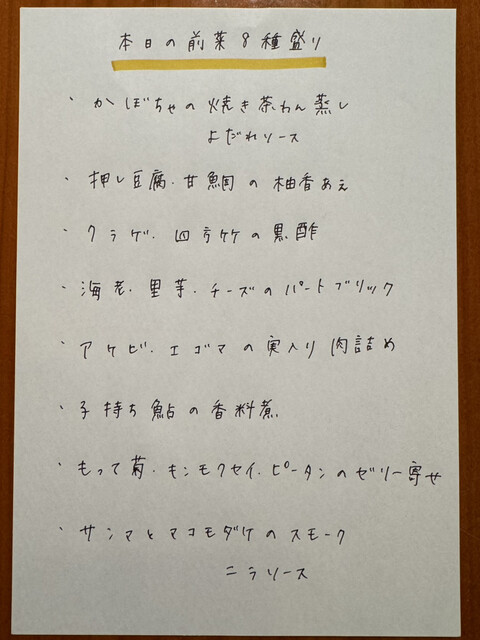 本日の前菜8種盛り
・かぼちゃの焼き茶わん蒸し
よだれソース
・押し豆腐・甘鯛の柚香あえ
・クラゲ・四方竹の黒酢
・海老・里芋・チーズのパートブリック
・アケビ・エゴマの実入り肉詰め
・子持ち鮎の香料煮
・もって菊・キンモクセイ・ピータンのゼリー寄せ
・サンマとマコモダケのスモーク
ニラソース